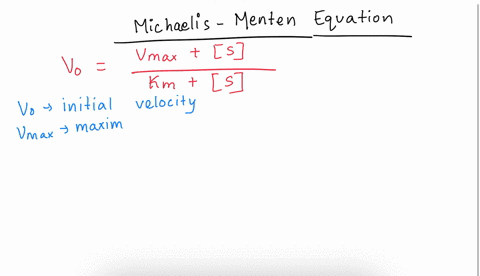 Michaelis - Menten Equation
V₀ = Vmax + [S]
Km + [S]
V₀ → initial velocity
Vmax → maxim